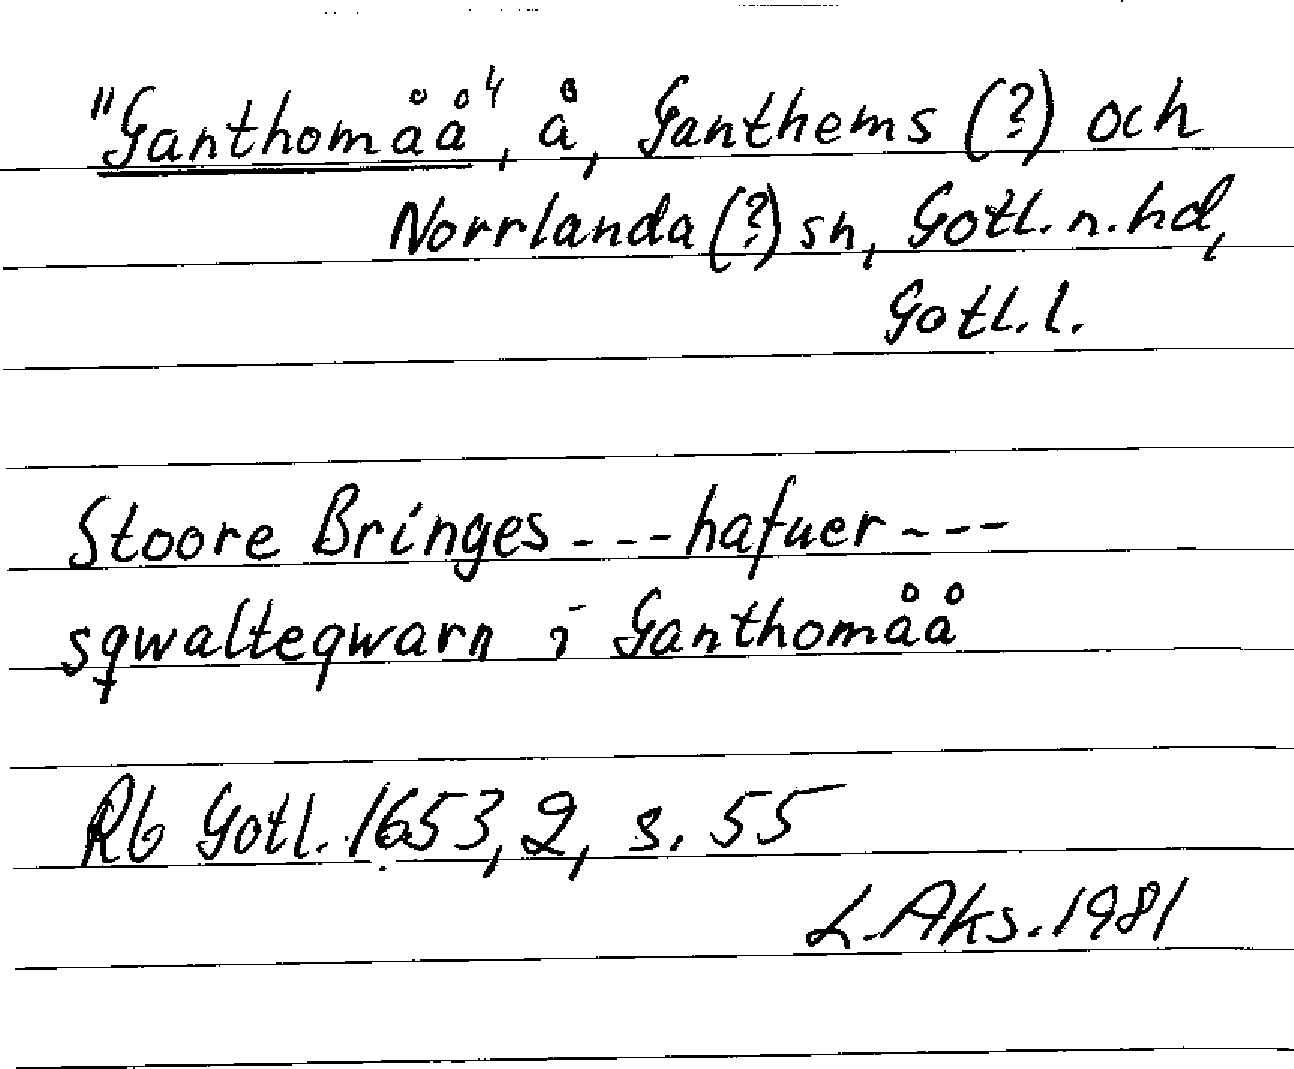 "Ganthomåå", å, Ganthems (?) och
Norrlanda (?) sn, Gotl. n. hd,
Gotl. l.
Stoore Bringes --- hafuer ---
sqwalteqwarn i Ganthomåå
Rb Gotl. 1653, 2, s. 55
L. Aks. 1981